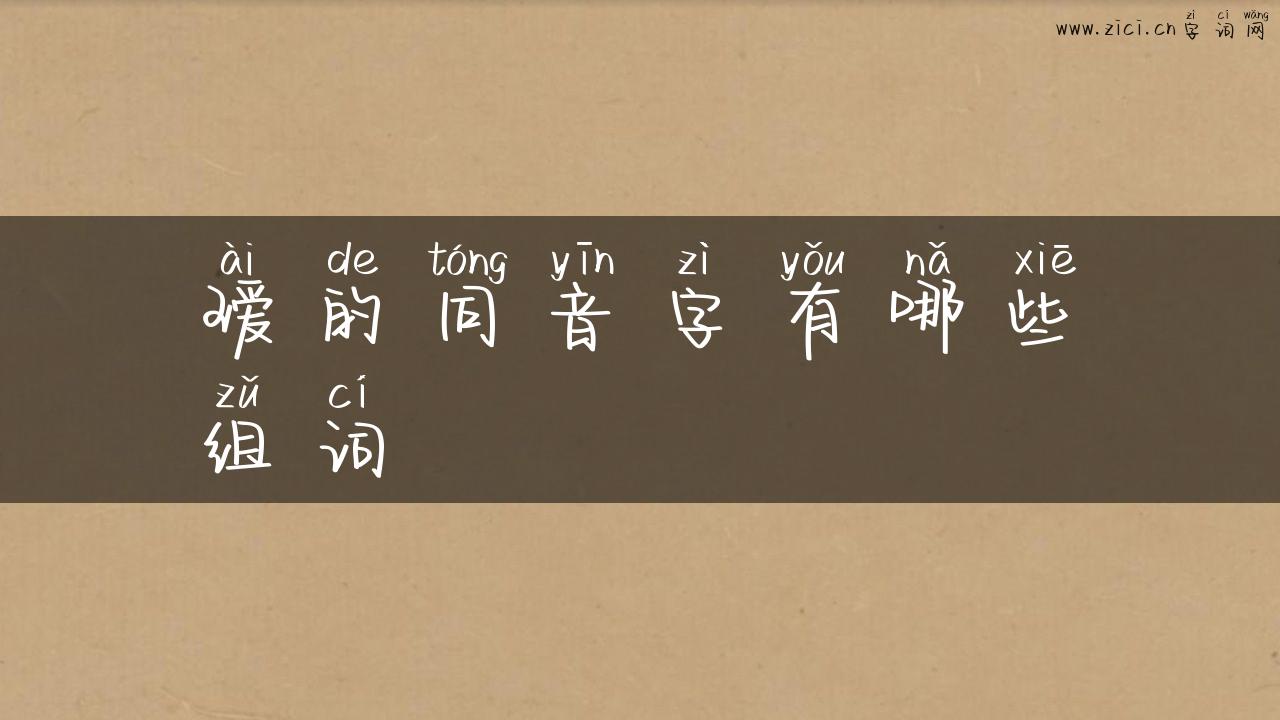 zì cí wǎng
www.zici.cn 字词网
ài de tóng yīn zì yǒu nǎ xiē
瑷的同音字有哪些
zǔ cí
组词